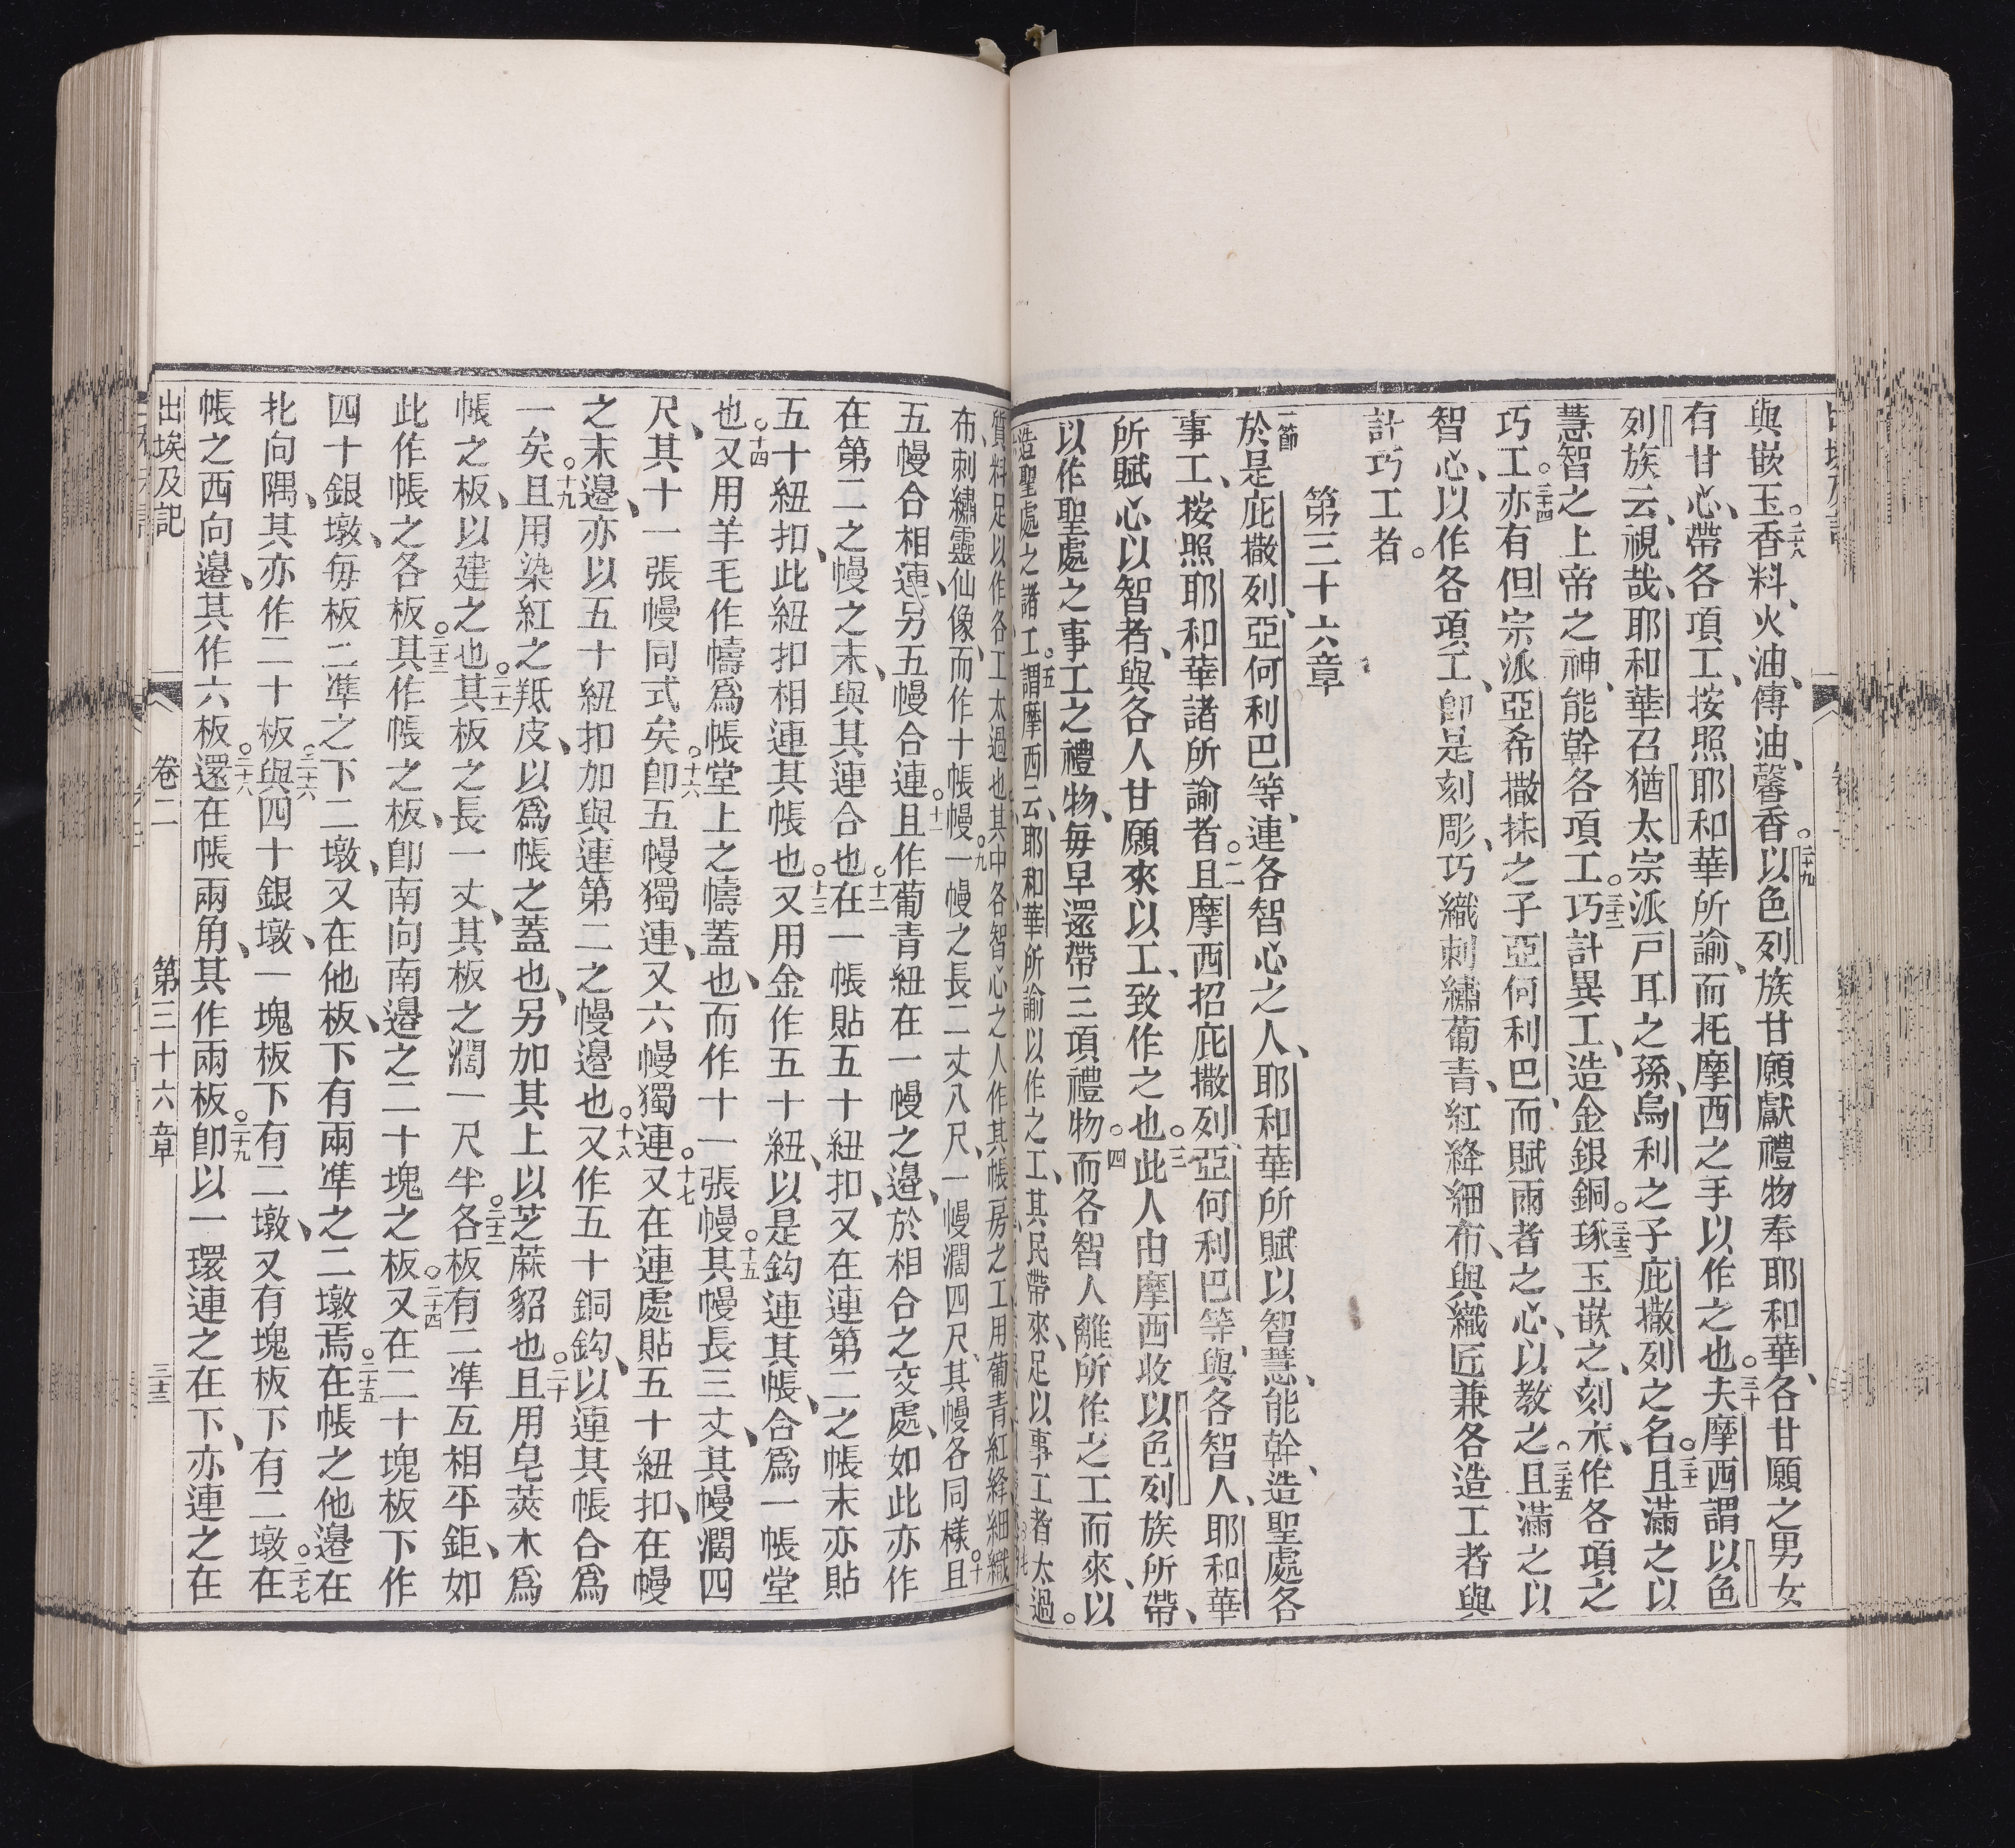 與嵌玉。二八香料、火油、傳油、馨香。二十九以色列族甘願獻禮物奉耶和華、各甘願之男女
有甘心、帶各項工、按照耶和華所諭、而托摩西之手以作之也。三十夫摩西謂以色
列族云、視哉、耶和華召猶太宗派戸耳之孫、烏利之子庇撒列之名。三十一且滿之以
慧智之上帝之神、能幹各項工。三十二巧計異工、造金銀銅。三十三琢玉嵌之、刻木、作各項之
巧工。三十四亦有但宗派亞希撒抹之子亞何利巴、而賦兩者之心、以教之。三十五且滿之以
智心、以作各項工、卽是刻彫、巧織刺繡葡青、紅絳細布、與織匠兼各造工者與
計巧工者。
第三十六章
一節於是庇撒列、亞何利巴等、連各智心之人、耶和華所賦以智慧、能幹、造聖處各
事工、按照耶和華諸所諭者。二且摩西招庇撒列、亞何利巴等、與各智人、耶和華
所賦心以智者、與各人甘願來以工、致作之也。三此人由摩西收以色列族所帶、
以作聖處之事工之禮物、每早還帶三項禮物。四而各智人離所作之工而來、以
造聖處之諸工。五謂摩西云、耶和華所諭以作之工、其民帶來、足以事工者太過。
質料足以作各工太過也其中各智心之人作其帳房之工用葡青紅絳細織
布、刺繡靈仙像、而作十帳幔。九一幔之長二丈八尺、一幔濶四尺、其幔各同樣。十且
五幔合相連、另五幔合連。十一且作葡青紐在一幔之邊、於相合之交處、如此亦作
在第二之幔之末、與其連合也。十二在一帳貼五十紐扣、又在連第二之帳末亦貼
五十紐扣、此紐扣相連其帳也。十三又用金作五十紐、以是鈎連其帳、合爲一帳堂
也。十四又用羊毛作幬爲帳堂上之幬蓋也、而作十一張幔。十五其幔長三丈、其幔濶四
尺、其十一張幔同式矣。十六卽五幔獨連、又六幔獨連。十七又在連處貼五十紐扣、在幔
之末邊、亦以五十紐扣加與連第二之幔邊也。十八又作五十銅鈎、以連其帳合爲
一矣。十九且用染紅之羝皮、以爲帳之蓋也、另加其上以芝蔴貂也。二十且用皂莢木爲
帳之板、以建之也。二十一其板之長一丈、其板之濶一尺半。二十二各板有二準互相平鉅、如
此作帳之各板。二十三其作帳之板、卽南向南邊之二十塊之板。二十四又在二十塊板下作
四十銀墩、每板二準之下二墩、又在他板、下有兩準之二墩焉。二十五在帳之他邊在
北向隅、其亦作二十板。二十六與四十銀墩、一塊板下有二墩、又有塊板下有二墩。二十七在
帳之西向邊、其作六板。二十八還在帳兩角、其作兩板。二十九卽以一環連之在下、亦連之在
出埃及記 卷二 第三十六章 三十三